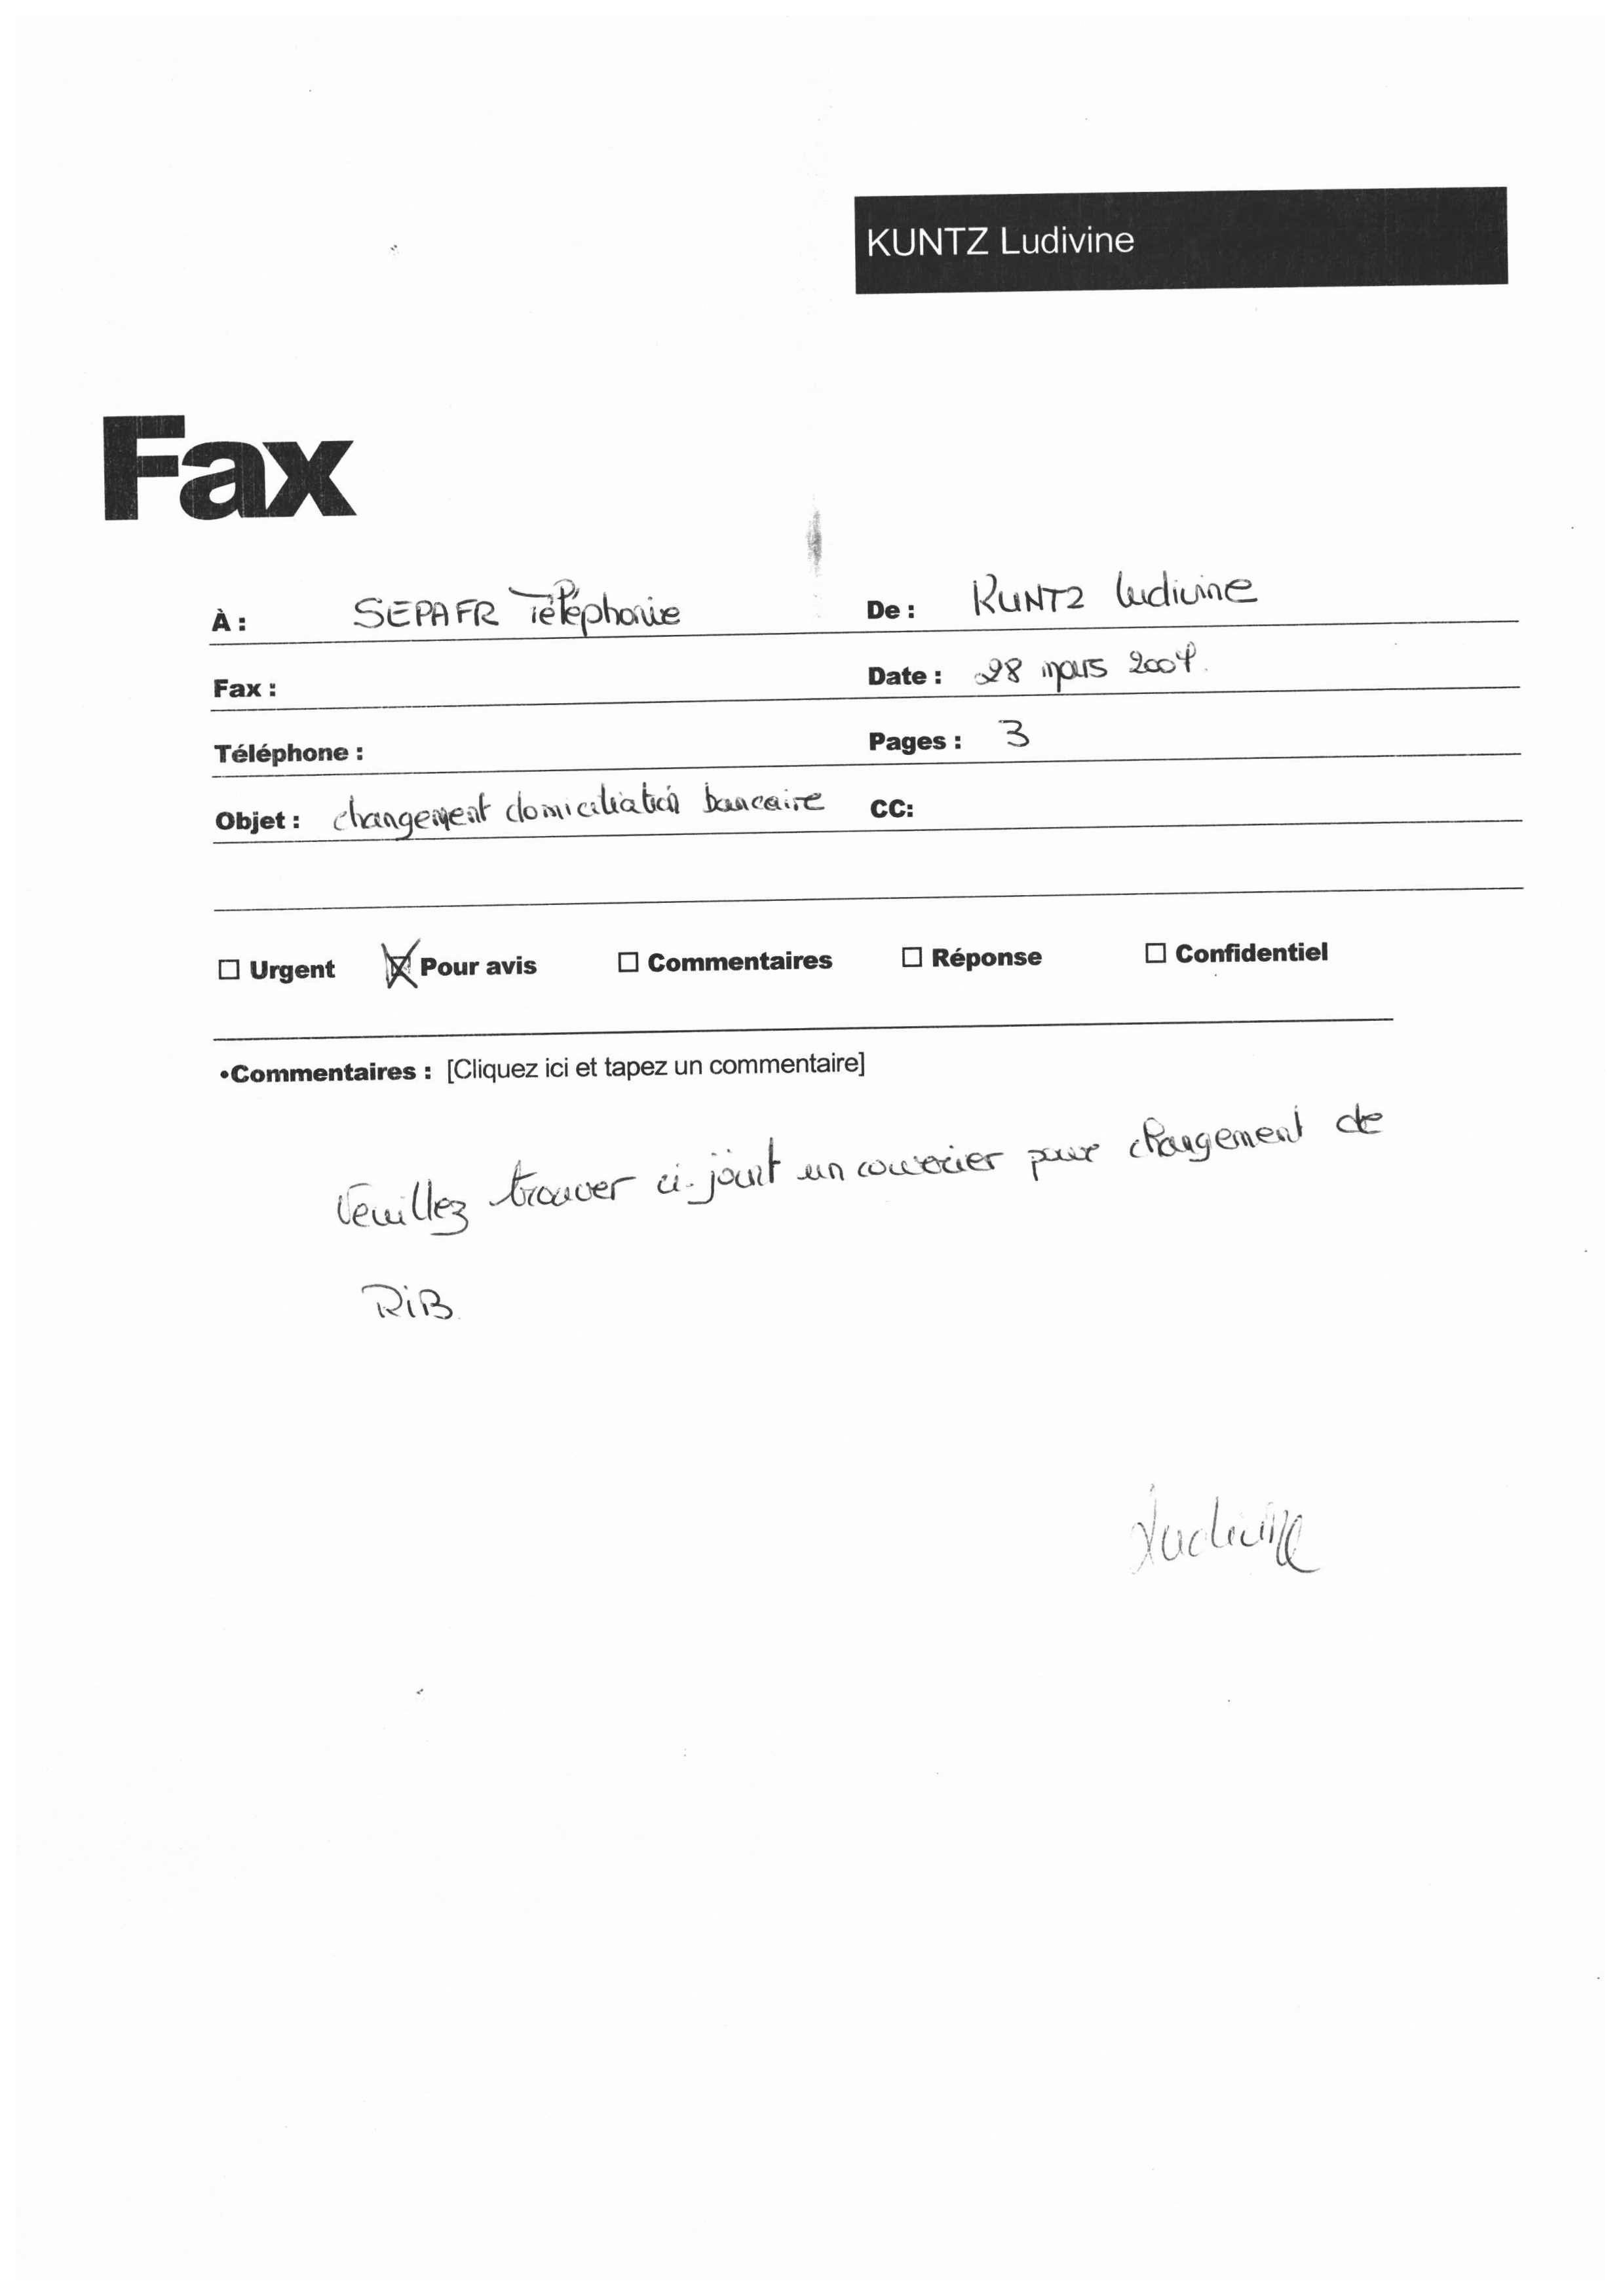 KUNTZ Ludivine
Fax
À : SEPAFR Téléphonie De : KUNTZ Ludivine
Fax : Date : 28 mars 2007.
Téléphone : Pages : 3
Objet : changement domiciliation bancaire CC:
Urgent Pour avis Commentaires Réponse Confidentiel
•Commentaires : [Cliquez ici et tapez un commentaire]
Veuillez trouver ci-joint un courrier pour changement de
RiB.
Ludivine